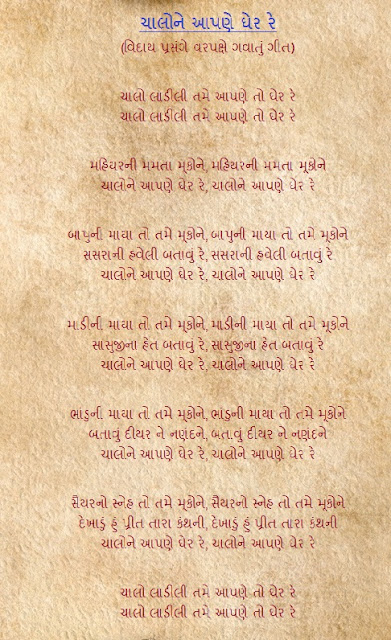 ચાલોને આપણે ઘેર રે
(વિદાય પ્રસંગે વરપક્ષે ગવાતું ગીત)
ચાલો લાડીલી તમે આપણે તો ઘેર રે
ચાલો લાડીલી તમે આપણે તો ઘેર રે
મહિયરની મમતા મૂકોને, મહિયરની મમતા મૂકોને
ચાલોને આપણે ઘેર રે, ચાલોને આપણે ઘેર રે
બાપુની માયા તો તમે મૂકોને, બાપુની માયા તો તમે મૂકોને
સસરાની હવેલી બતાવું રે, સસરાની હવેલી બતાવું રે
ચાલોને આપણે ઘેર રે, ચાલોને આપણે ઘેર રે
માડીની માયા તો તમે મૂકોને, માડીની માયા તો તમે મૂકોને
સાસુજીના હેત બતાવું રે, સાસુજીના હેત બતાવું રે
ચાલોને આપણે ઘેર રે, ચાલોને આપણે ઘેર રે
ભાંડુની માયા તો તમે મૂકોને, ભાંડુની માયા તો તમે મૂકોને
બતાવું દીયર ને નણંદને, બતાવું દીયર ને નણંદને
ચાલોને આપણે ઘેર રે, ચાલોને આપણે ઘેર રે
સૈયરનો સ્નેહ તો તમે મૂકોને, સૈયરનો સ્નેહ તો તમે મૂકોને
દેખાડું હું પ્રીત તારા કંથની, દેખાડું હું પ્રીત તારા કંથની
ચાલોને આપણે ઘેર રે, ચાલોને આપણે ઘેર રે
ચાલો લાડીલી તમે આપણે તો ઘેર રે
ચાલો લાડીલી તમે આપણે તો ઘેર રે